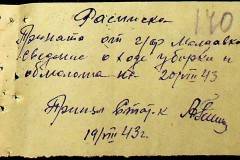 Расписка
170
Принята от г/ф Молдавка
Сведение о ходе уборки и
обмолота на 20/VIII 43
Принял Стат-к
19/VIII 43 г.